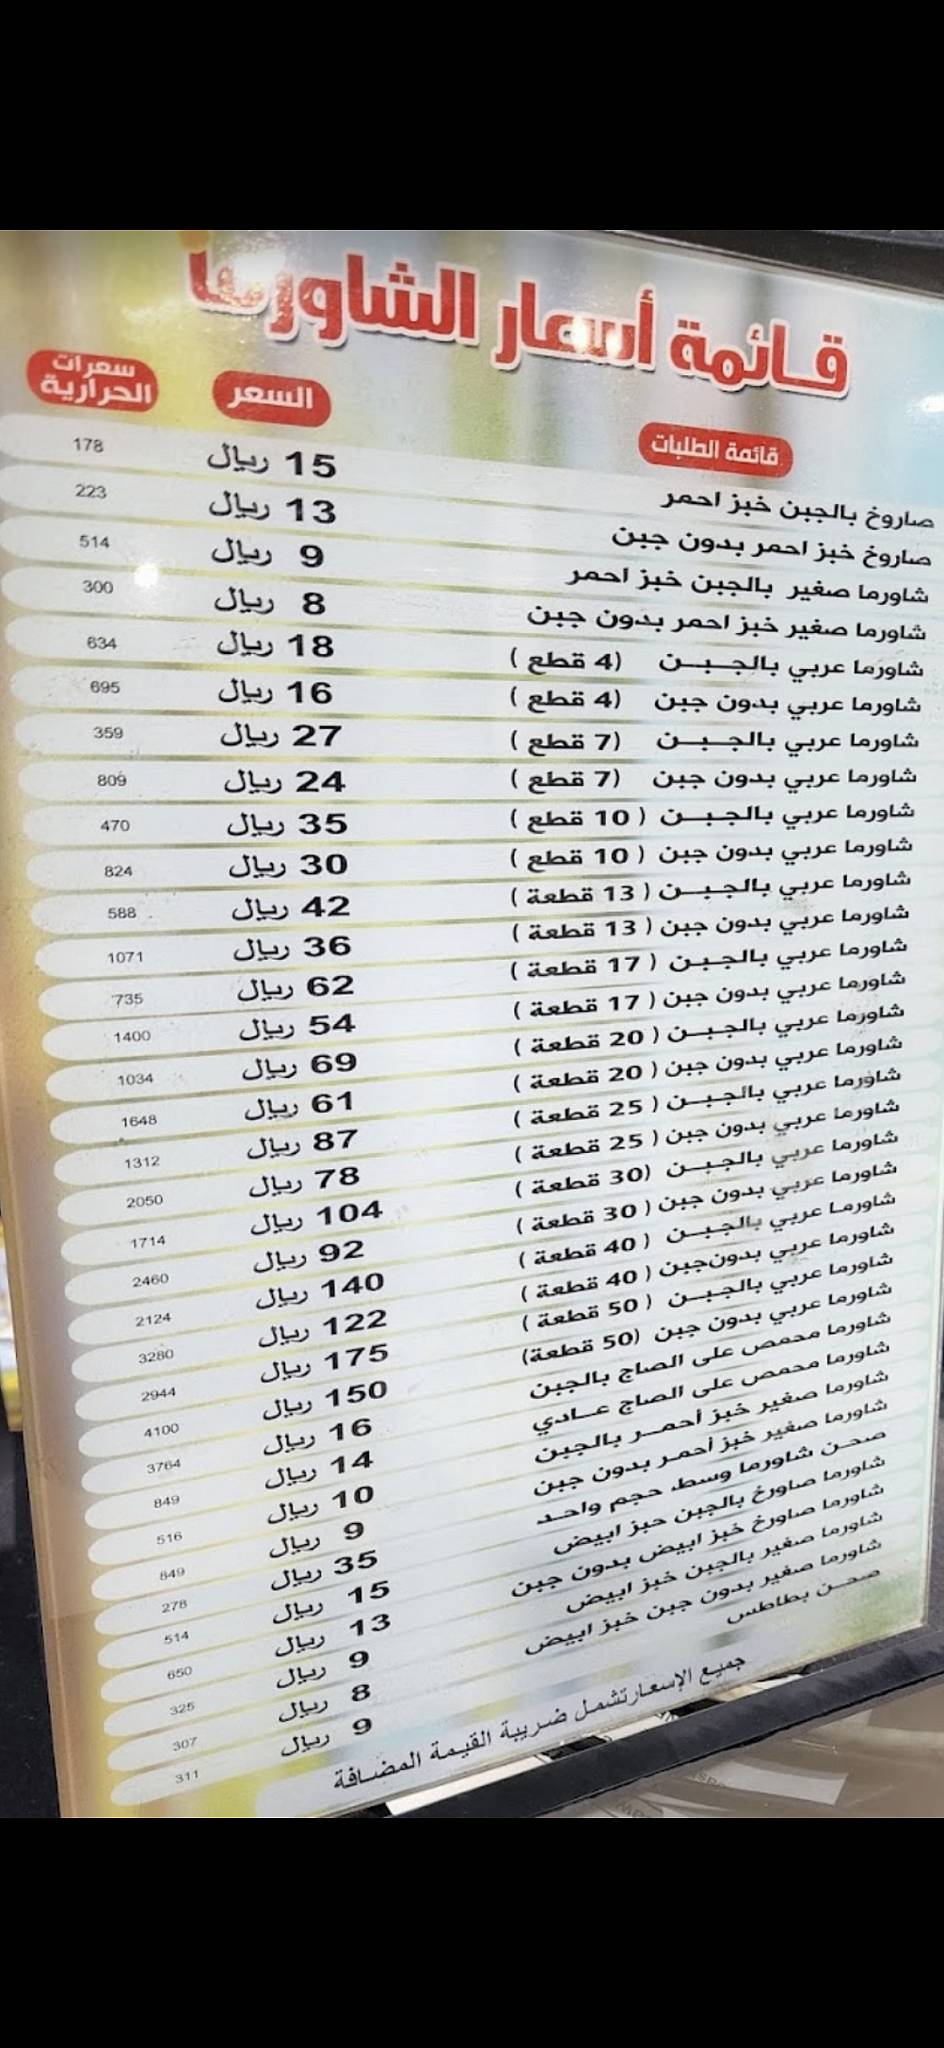 قائمة أسعار الشاورما
قائمة الطلبات السعر سعرات الحرارية
صاروخ بالجبن خبز احمر 15 ريال 178
صاروخ خبز احمر بدون جبن 13 ريال 223
شاورما صغير بالجبن خبز احمر 9 ريال 514
شاورما صغير خبز احمر بدون جبن 8 ريال 300
شاورما عربي بالجبن (4 قطع) 18 ريال 634
شاورما عربي بدون جبن (4 قطع) 16 ريال 695
شاورما عربي بالجبن (7 قطع) 27 ريال 359
شاورما عربي بدون جبن (7 قطع) 24 ريال 809
شاورما عربي بالجبن (10 قطع) 35 ريال 470
شاورما عربي بدون جبن (10 قطع) 30 ريال 824
شاورما عربي بالجبن (13 قطعة) 42 ريال 588
شاورما عربي بدون جبن (13 قطعة) 36 ريال 1071
شاورما عربي بالجبن (17 قطعة) 62 ريال 735
شاورما عربي بدون جبن (17 قطعة) 54 ريال 1400
شاورما عربي بالجبن (20 قطعة) 69 ريال 1034
شاورما عربي بدون جبن (20 قطعة) 61 ريال 1648
شاورما عربي بالجبن (25 قطعة) 87 ريال 1312
شاورما عربي بدون جبن (25 قطعة) 78 ريال 2050
شاورما عربي بالجبن (30 قطعة) 104 ريال 1714
شاورما عربي بدون جبن (30 قطعة) 92 ريال 2460
شاورما عربي بالجبن (40 قطعة) 140 ريال 2124
شاورما عربي بدون جبن (40 قطعة) 122 ريال 3280
شاورما عربي بالجبن (50 قطعة) 175 ريال 2944
شاورما عربي بدون جبن (50 قطعة) 150 ريال 4100
شاورما محمص على الصاج بالجبن 16 ريال 3764
شاورما محمص على الصاج عادي 14 ريال 849
شاورما صغير خبز أحمر بالجبن 10 ريال 516
شاورما صغير خبز أحمر بدون جبن 9 ريال 849
صحن شاورما وسط، حجم واحد 35 ريال 278
شاورما صاورخ بالجبن حبز ابيض 15 ريال 514
شاورما صاورخ خبز ابيض بدون جبن 13 ريال 650
شاورما صغير بالجبن خبز ابيض 9 ريال 325
شاورما صغير بدون جبن خبز ابيض 8 ريال 307
صحن بطاطس 9 ريال 311
جميع الإسعارتشمل ضريبة القيمة المضافة